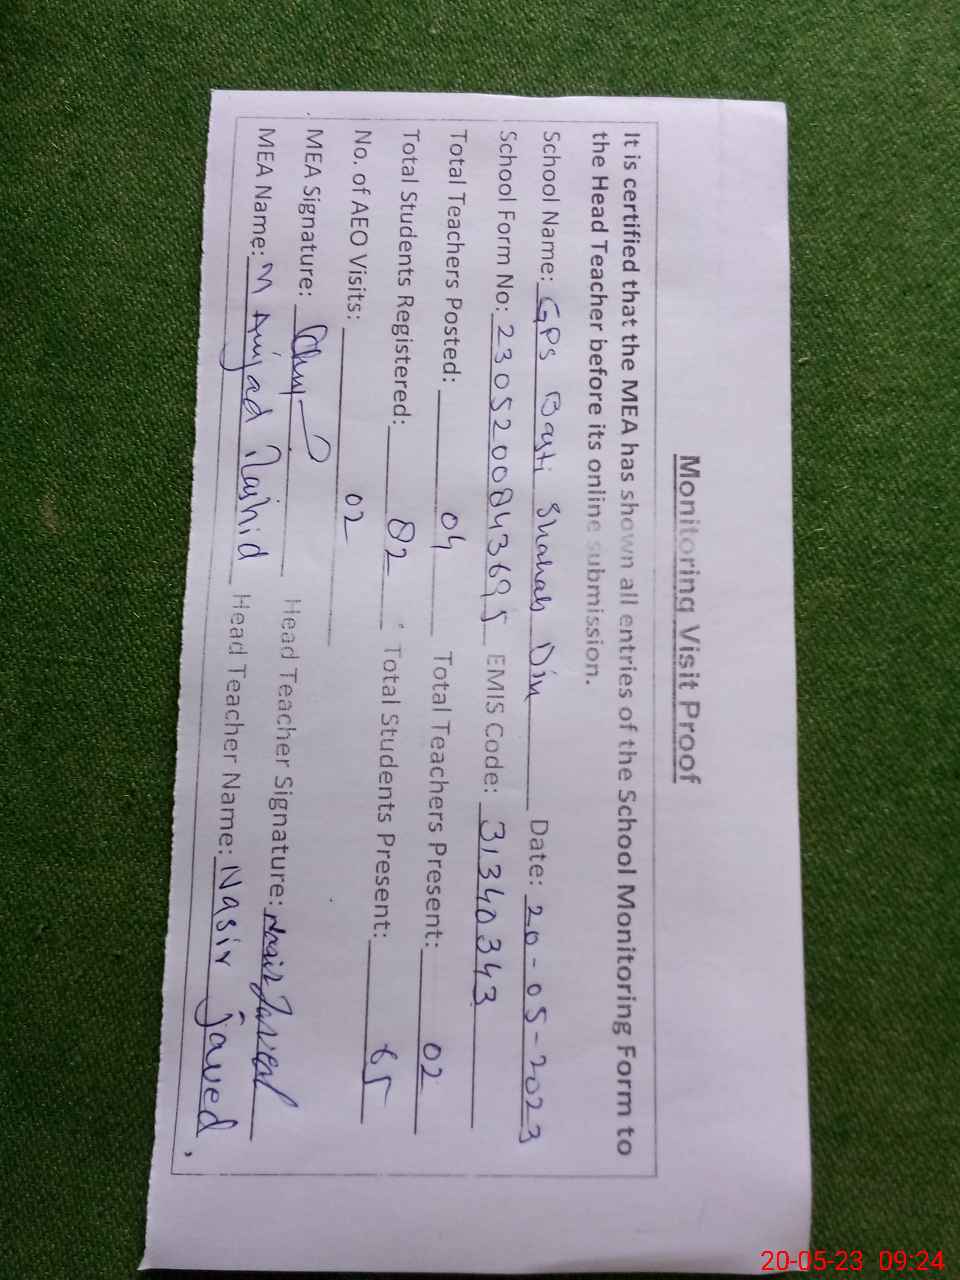 Monitoring Visit Proof
It is certified that the MEA has shown all entries of the School Monitoring Form to
the Head Teacher before its online submission.
School Name: GPS Basti Shahab Din Date: 20-05-2023
School Form No: 2305200843695 EMIS Code: 31340343
Total Teachers Posted: 04 Total Teachers Present: 02
Total Students Registered: 82 Total Students Present: 65
No. of AEO Visits: 02
MEA Signature: Head Teacher Signature: Nasir Javed
MEA Name: M Amjad Rashid Head Teacher Name: Nasir javed
20-05-23 09:24